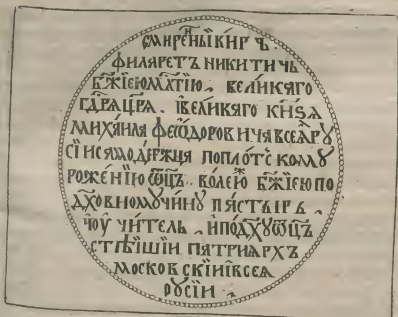 смире́ны́й ки́р ъ
филяретъ никити чь
бж҃їею мл҃тїю . великяго
гд҃ря црⷭ҇я . ївеликяго кн҃sя
михяиля феѡдоров ичя всея рꙋ
сїи сямодержця по плотⷭ҇комꙋ
роже́нїю ѡц҃ъ . волею бж҃їею по
дх҃овномꙋ чи́нꙋ пястырь .
ꙋчитель . и по дх҃ꙋ ѡц҃ъ
стѣ́йшїи пятриярхъ
московскїи ївсея
роусїи .